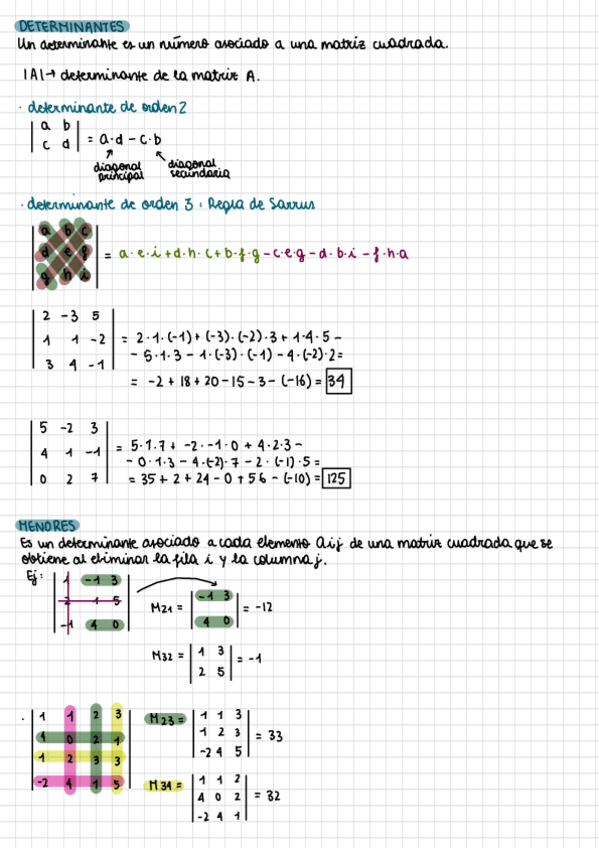 DETERMINANTES
Un determinante es un número asociado a una matriz cuadrada.
|A| → determinante de la matriz A.
· determinante de orden 2
| a b |
| c d | = a·d - c·b
diagonal principal
diagonal secundaria
· determinante de orden 3: Regla de Sarrus
| a b c |
| d e f | = a·e·i + d·h·c + b·f·g - c·e·g - d·b·i - f·h·a
| g h i |
| 2 -3 5 |
| 1 1 -2 | = 2·1·(-1) + (-3)·(-2)·3 + 1·4·5 -
| 3 4 -1 | - 5·1·3 - 1·(-3)·(-1) - 4·(-2)·2 =
= -2 + 18 + 20 - 15 - 3 - (-16) = 34
| 5 -2 3 |
| 4 1 -1 | = 5·1·7 + -2·-1·0 + 4·2·3 -
- 0·1·3 - 4·(-2)·7 - 2·(-1)·5 =
| 0 2 7 | = 35 + 2 + 24 - 0 + 56 - (-10) = 125
MENORES
Es un determinante asociado a cada elemento aij de una matriz cuadrada que se
obtiene al eliminar la fila i y la columna j.
Ej:
| 1 -1 3 |
| 2 1 5 |
| -1 4 0 |
M21 = | -1 3 |
| 4 0 | = -12
M32 = | 1 3 |
| 2 5 | = -1
· | 1 1 2 3 |
| 4 0 2 1 |
| 1 2 3 3 |
| -2 4 1 5 |
M23 = | 1 1 3 |
| 1 2 3 | = 33
| -2 4 5 |
M34 = | 1 1 2 |
| 4 0 2 | = 32
| -2 4 1 |